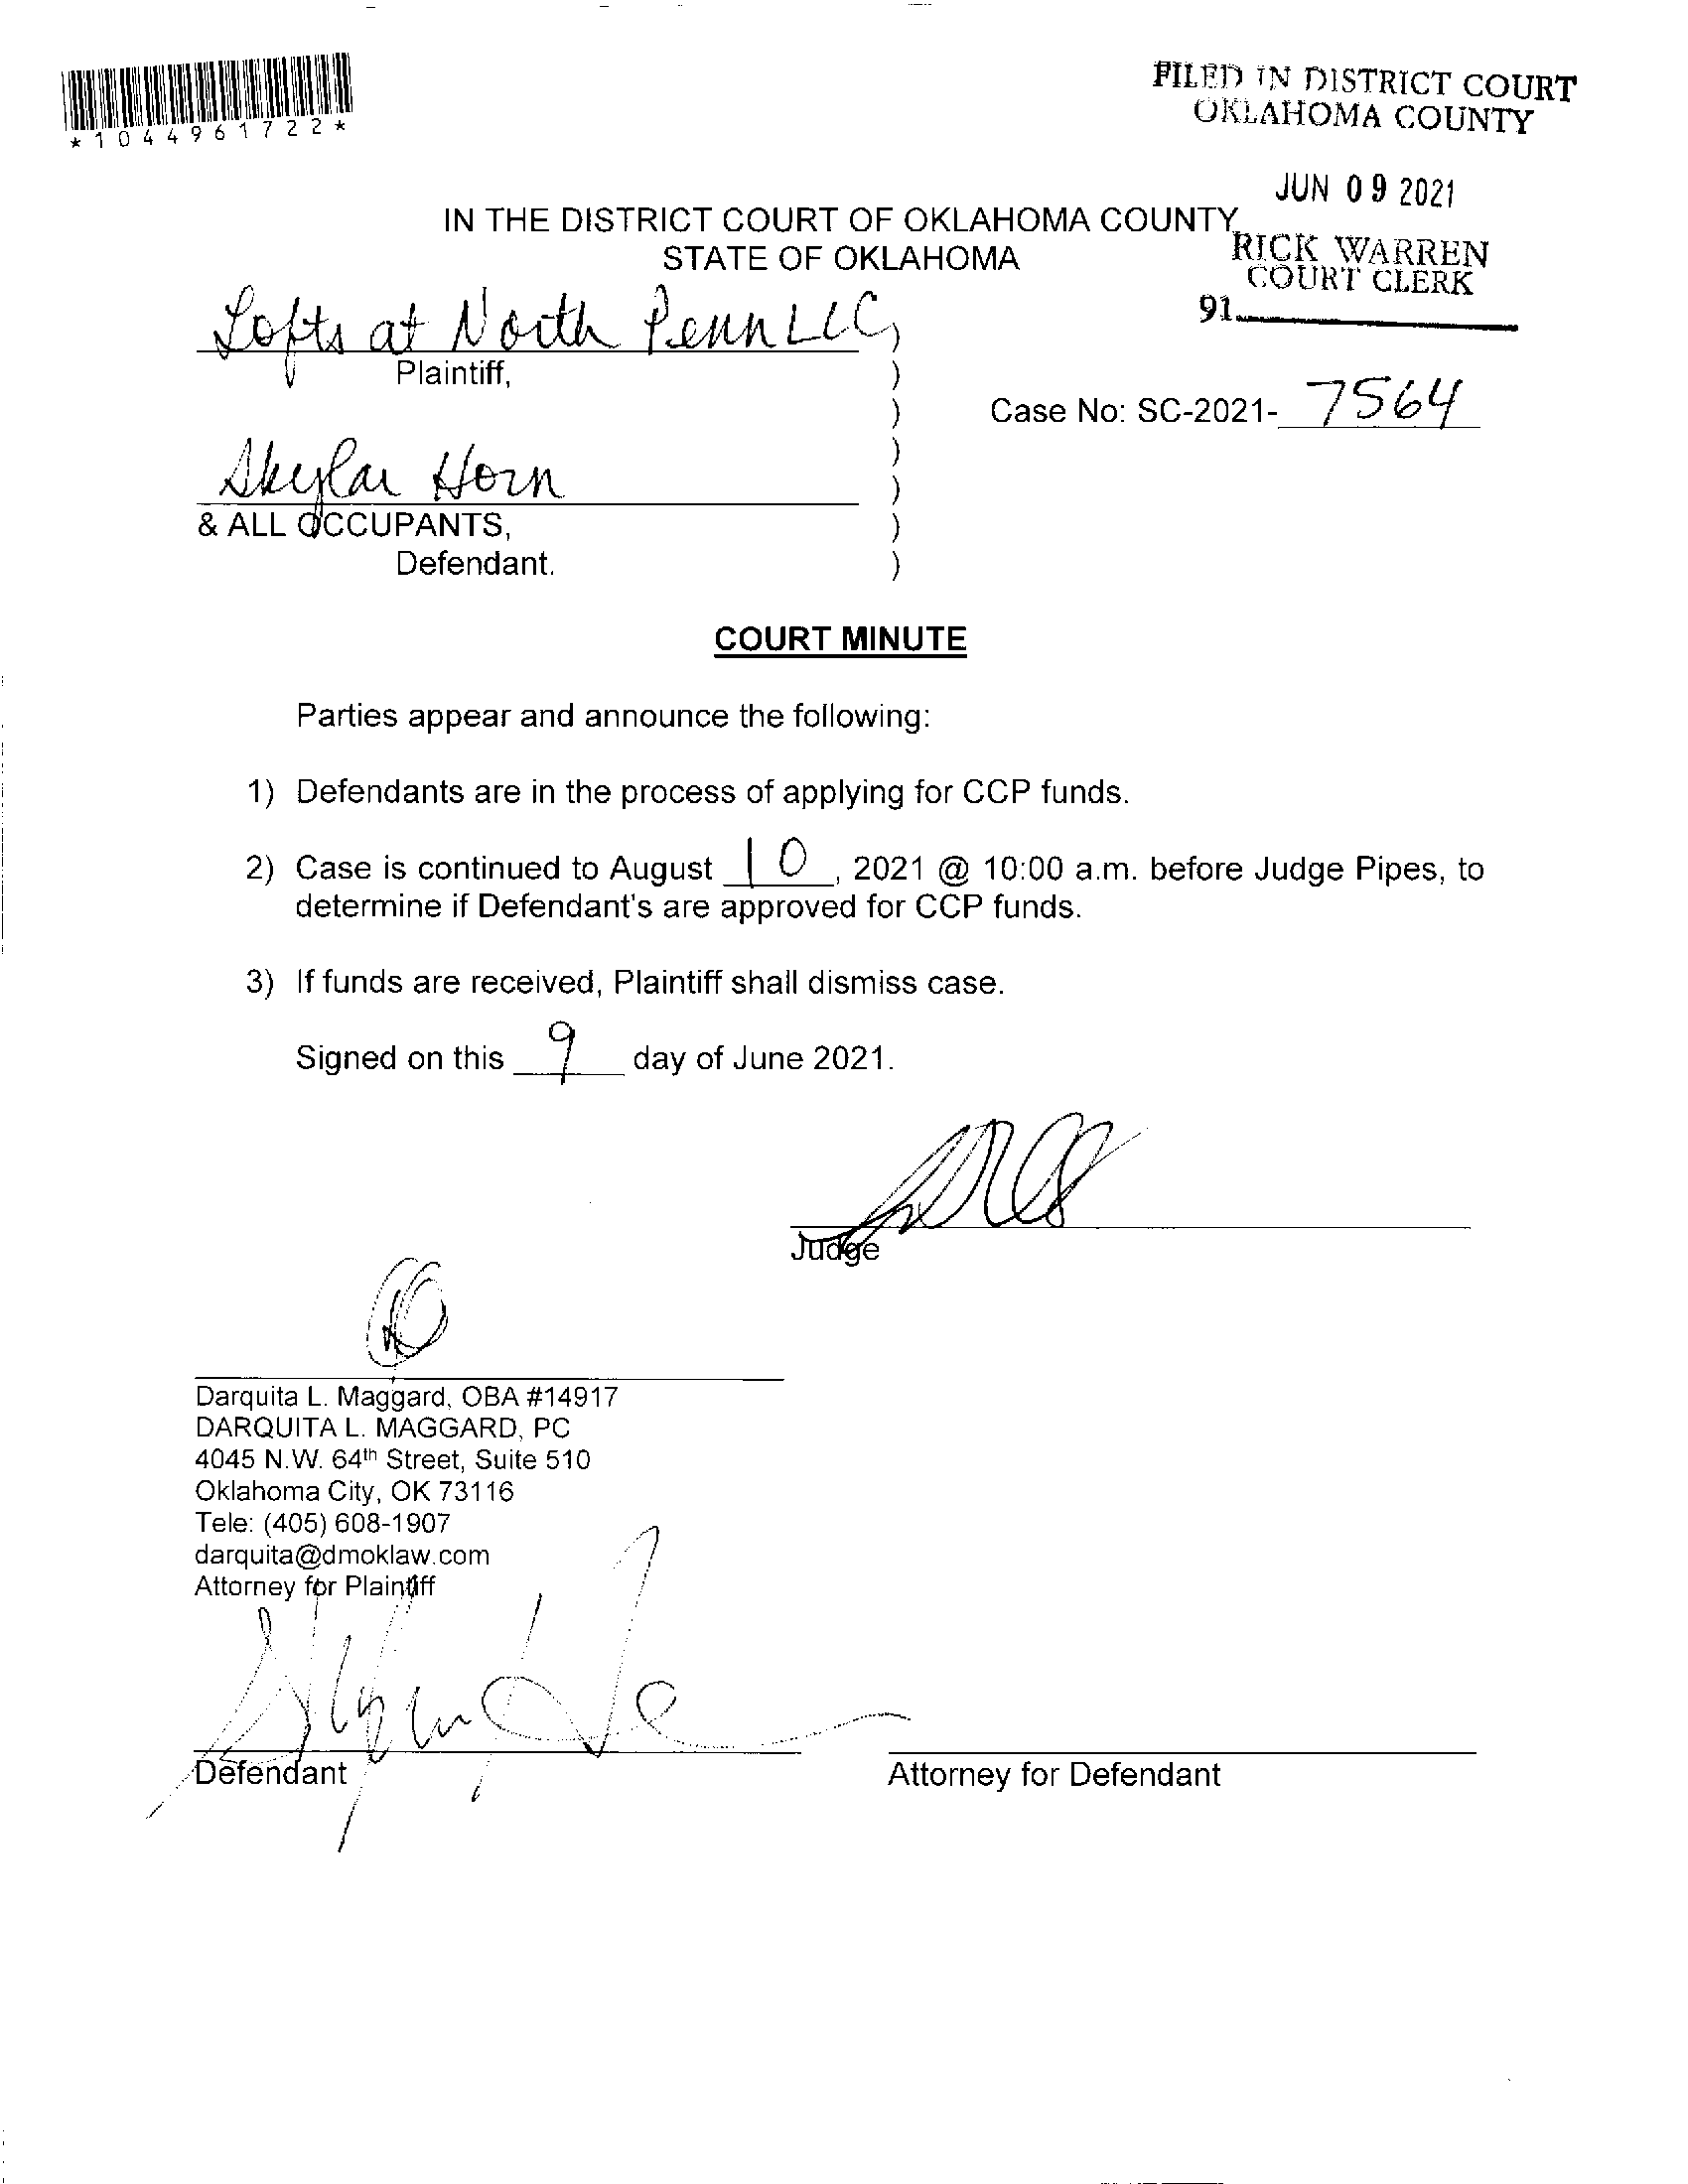 *1044961722*
FILED IN DISTRICT COURT
OKLAHOMA COUNTY
JUN 09 2021
RICK WARREN
COURT CLERK
91
IN THE DISTRICT COURT OF OKLAHOMA COUNTY
STATE OF OKLAHOMA
Lofts at North Penn LLC,
Plaintiff,
Case No: SC-2021- 7564
Skylar Horn
& ALL OCCUPANTS,
Defendant.
)
)
)
)
)
)
)
COURT MINUTE
Parties appear and announce the following:
1) Defendants are in the process of applying for CCP funds.
2) Case is continued to August 10, 2021 @ 10:00 a.m. before Judge Pipes, to
determine if Defendant's are approved for CCP funds.
3) If funds are received, Plaintiff shall dismiss case.
Signed on this 9 day of June 2021.
Judge
Darquita L. Maggard, OBA #14917
DARQUITA L. MAGGARD, PC
4045 N.W. 64th Street, Suite 510
Oklahoma City, OK 73116
Tele: (405) 608-1907
darquita@dmoklaw.com
Attorney for Plaintiff
Defendant
Attorney for Defendant